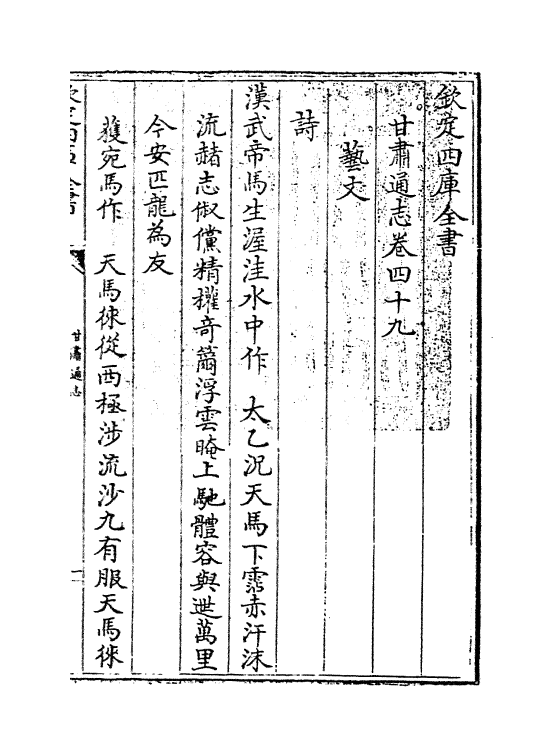 欽定四庫全書
甘肅通志卷四十九
藝文
詩
漢武帝馬生渥洼水中作　太乙况天馬下霑赤汗沫
流赭志俶儻精權奇籋浮雲晻上馳體容與迣萬里
今安匹龍為友
蒦宛馬作　天馬徠從西極涉流沙九有服天馬徠
甘肅通志
一